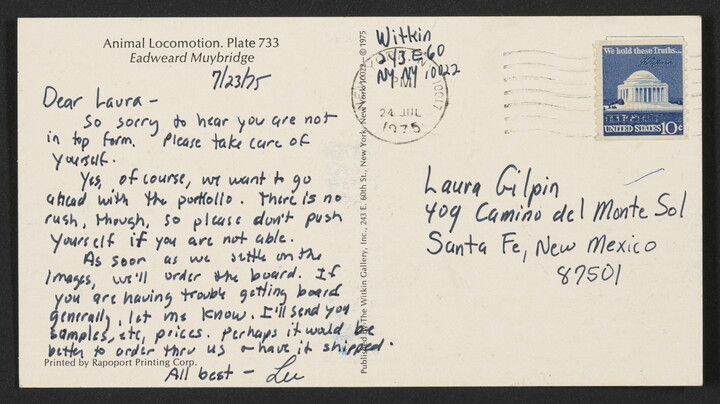 Animal Locomotion. Plate 733
Eadweard Muybridge
7/23/75
Dear Laura -
So sorry to hear you are not
in top form. Please take care of
yourself.
Yes, of course, we want to go
ahead with the portfolio. There is no
rush, though, so please don't push
yourself if you are not able.
As soon as we settle on the
images, we'll order the board. If
you are having trouble getting board
generally, let me know. I'll send you
samples, etc, prices. Perhaps it would be
better to order thru us & have it shipped.
All best - Lee
Printed by Rapoport Printing Corp.
Published by The Witkin Gallery, Inc., 243 E. 60th St., New York, New York 10022 — © 1975
Witkin
243 E 60
NY NY 10022
PM
24 JUL
1975
10017
We hold these Truths...
UNITED STATES 10c
Laura Gilpin
409 Camino del Monte Sol
Santa Fe, New Mexico
87501